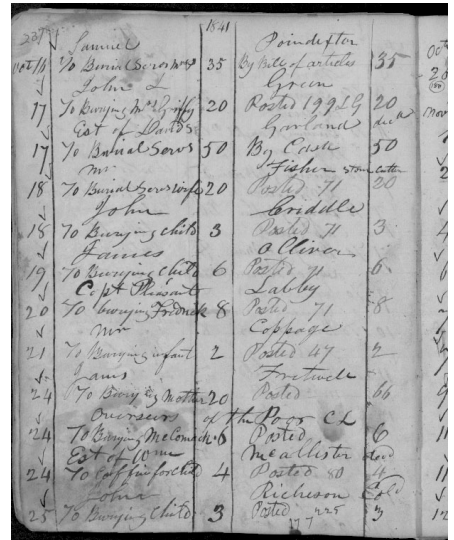 237 1841
Samuel Poindexter
Oct 16 To Burial Servs Mrs P 35 By Bill of articles 35
John L Green
17 To Burying Mrs Griffy 20 Posted 199 LG 20
Est of Davids Garland decd
17 To Burial Servs 50 By Cash 50
Mr Fisher Stone Cutter
18 To Burial Servs wife 20 Posted 71 20
John Criddle
18 To Burying Child 3 Posted 71 3
James Oliver
19 To Burying Child 6 Posted 71 6
Capt Pleasants Labby
20 To burying Fredrick 8 Posted 71 8
Mr Coppage
21 To Burying infant 2 Posted 47 2
Fretwell
24 To Burying Mother 20 Posted 66
Overseers of the Poor CL
24 To Burying McCormack 6 Posted 6
Est of Wm McAllister decd
24 To Coffin for Child 4 Posted 80 4
John Richeson Cold
25 To Burying Child 3 Posted 225 3
177